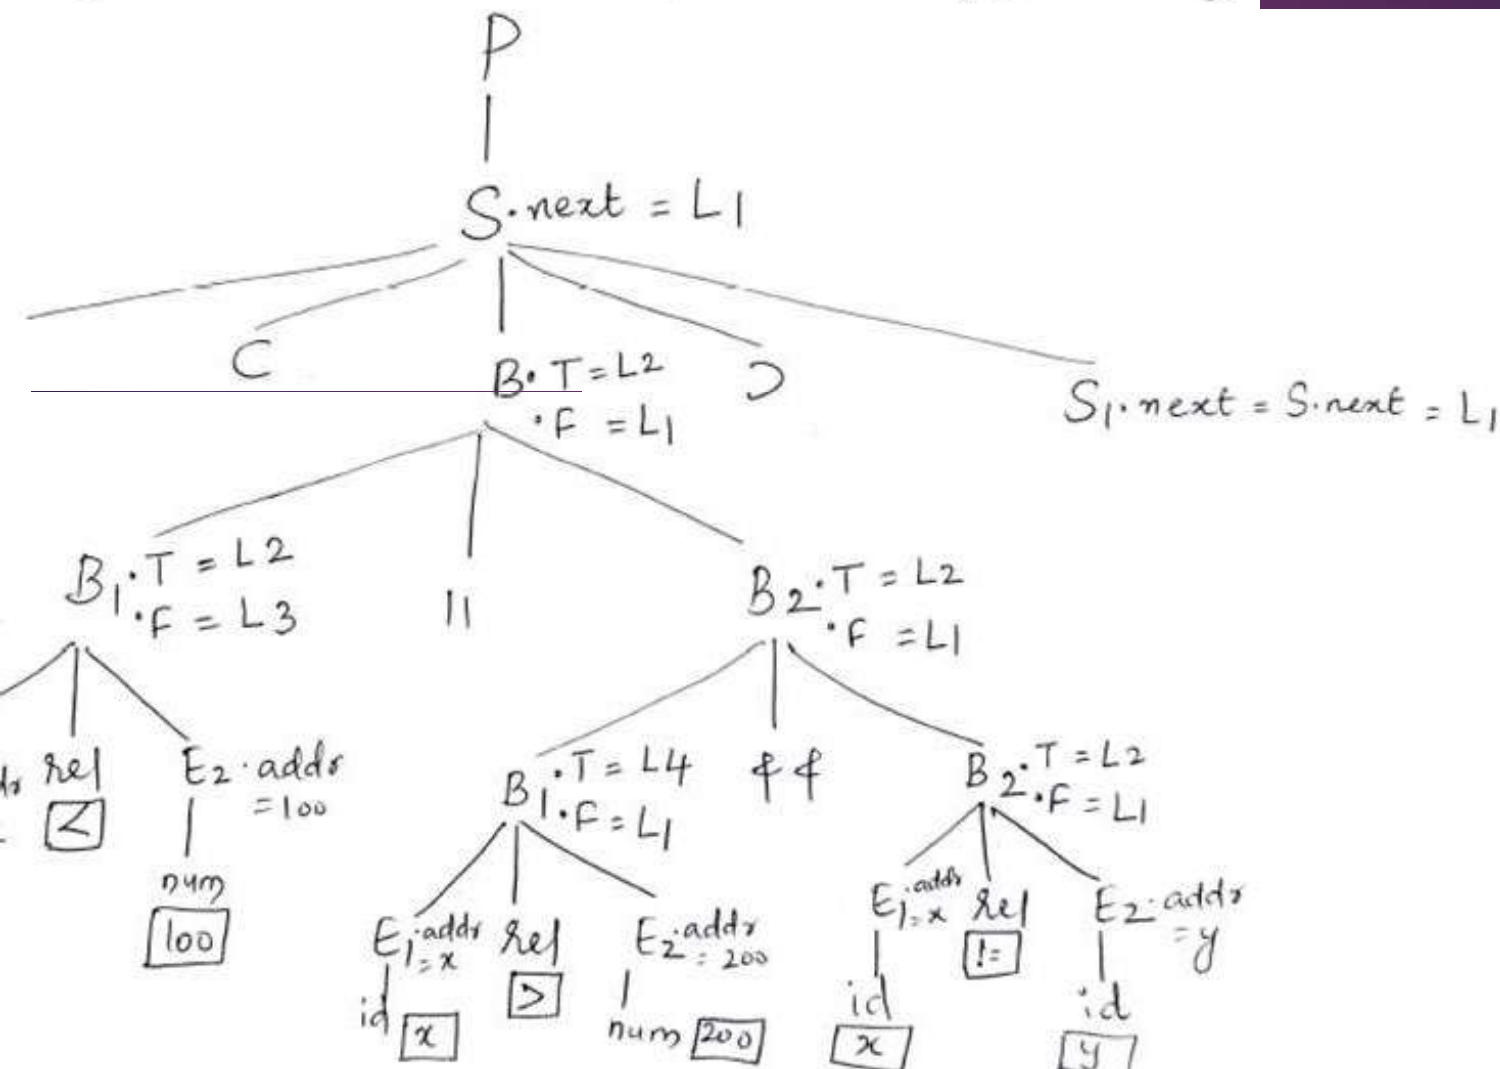 P
S.next = L1
( B.T = L2 )
.F = L1
S1.next = S.next = L1
B1.T = L2
.F = L3
||
B2.T = L2
.F = L1
rel
<
E2.addr
=100
num
100
B1.T = L4
.F = L1
&&
B2.T = L2
.F = L1
E1.addr
=x
id
x
rel
>
E2.addr
= 200
num 200
E1.addr
=x
id
x
rel
!=
E2.addr
= y
id
y